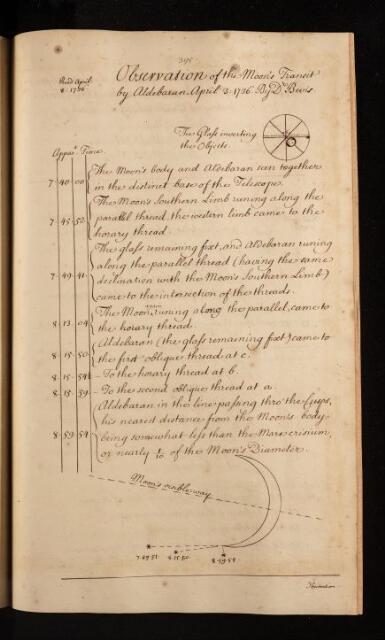 395
Read April
8. 1736
Observation of the Moon's Transit
by Aldebaran April 3. 1736 By Dr Bevis
The Glass inverting
the Objects.
Appar. Time
The Moon's body and Aldebaran seen together
7 40 00 in the distinct base of the Telescope.
The Moon's Southern Limb runing along the
7 45 52 parallel thread, the western limb came to the
horary thread
The glass remaining fixt, and Aldebaran runing
along the parallel thread (having the same
7 49 41 declination with the Moon's Southern Limb)
came to the intersection of the threads.
The Moon again runing along the parallel, came to
8 13 04 the horary thread.
Aldebaran (the glass remaining fixt) came to
8 15 50 the first oblique thread at c.
8 15 54 – To the horary thread at b.
8 15 59 – To the second oblique thread at a.
Aldebaran in the line passing thro' the Cusps,
his nearest distance from the Moon's body
8 59 54 being somewhat less than the Mare crisium,
or nearly 1/10 of the Moon's Diameter.
Moon's visible way
7.49.51
8.15.50
8.59.54